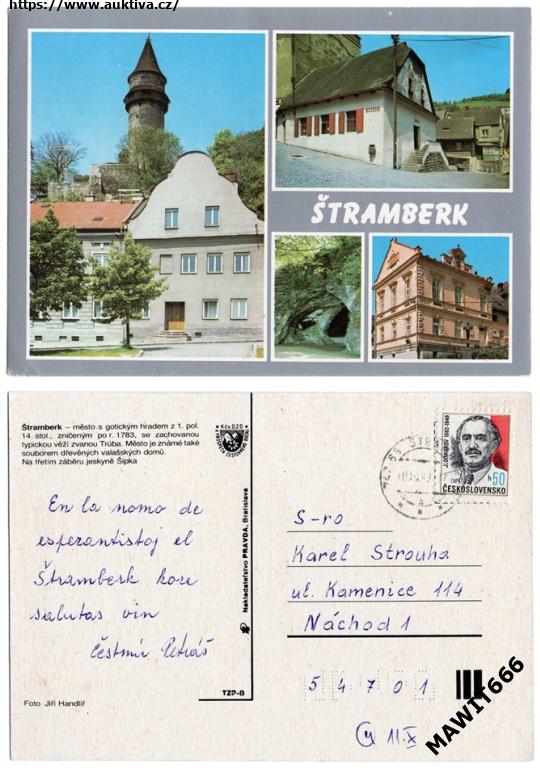 https://www.auktiva.cz/
ŠTRAMBERK
Štramberk – město s gotickým hradem z 1. pol.
14. stol., zničeným po r. 1783, se zachovanou
typickou věží zvanou Trúba. Město je známé také
souborem dřevěných valašských domů.
Na třetím záběru jeskyně Šipka
Kčs 0,20
En la nomo de
esperantistoj el
Štramberk kore
salutas vin
Čestmír Petráš
Foto Jiří Handlíř
Nakladateľstvo PRAVDA, Bratislava
TZP-B
J. DIMITROV 1882-1949
50 h
ČESKOSLOVENSKO
S-ro
Karel Strouha
ul. Kamenice 114
Náchod 1
54701
11.X
MAWIT666